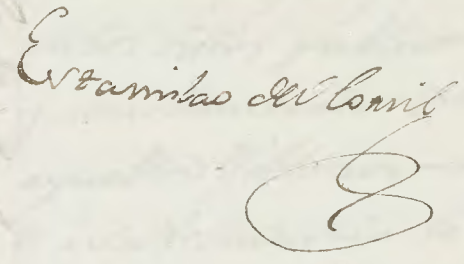 Estanislao del Conril